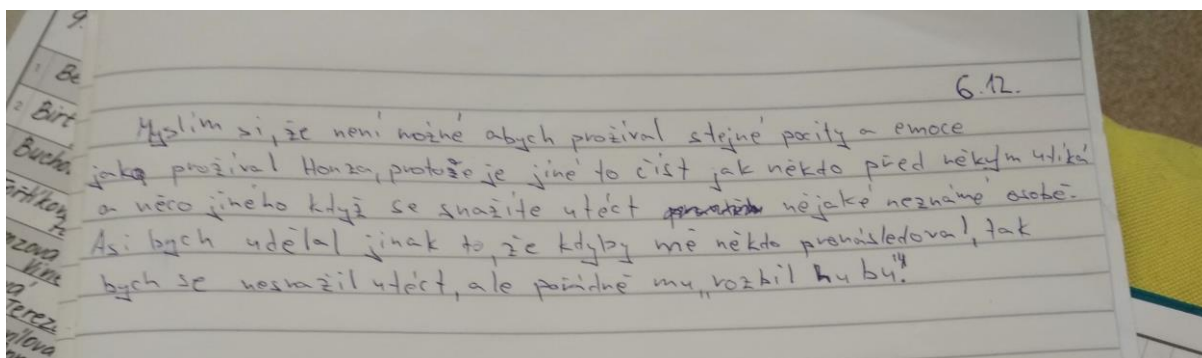 9.
1 Be
2 Birt
Bucho
6.12.
Myslím si, že není možné abych prožíval stejné pocity a emoce
jako prožíval Honza, protože je jiné to číst jak někdo před někým utíká
a něco jiného když se snažíte utéct nějaké neznámé osobě.
Asi bych udělal jinak to, že kdyby mě někdo pronásledoval, tak
bych se nesnažil utéct, ale pořádně mu „rozbil hubu".
Terez